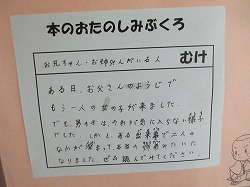 本のおたのしみぶくろ
お兄ちゃん・お姉ちゃんがいる人 むけ
ある日、お父さんのようじで
もう一人の女の子が来ました。
でも、男の子は、それが気に入らない様子
でした。しかし、ある出来事で二人の
なかが深まって、本当の兄弟みたいに
なりました ぜひ読んでみてください。